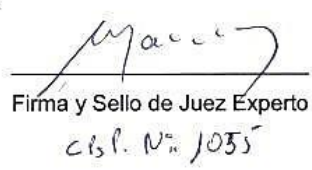 Firma y Sello de Juez Experto
C.P.S.P. N° 1035